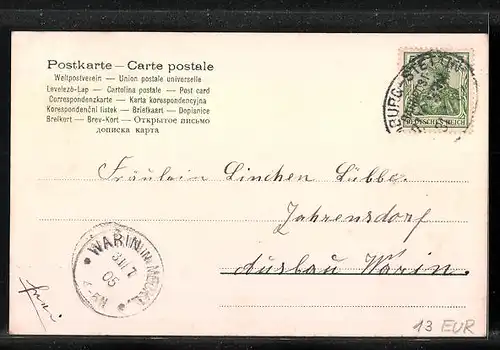 Postkarte — Carte postale
Weltpostverein — Union postale universelle
Levelező-Lap — Cartolina postale — Post card
Correspondenzkarte — Karta korespondencyjna
Korespondenční listek — Briefkaart — Dopisnice
Breikort — Brev-Kort — Открытое письмо
дописка карта
BURG-STE
DEUTSCHES REICH
Fräulein Linchen Lübbe.
Jahrensdorf
Ausbau Warin.
* WARIN IN MECKL. *
31 7
05
4-5N
13 EUR